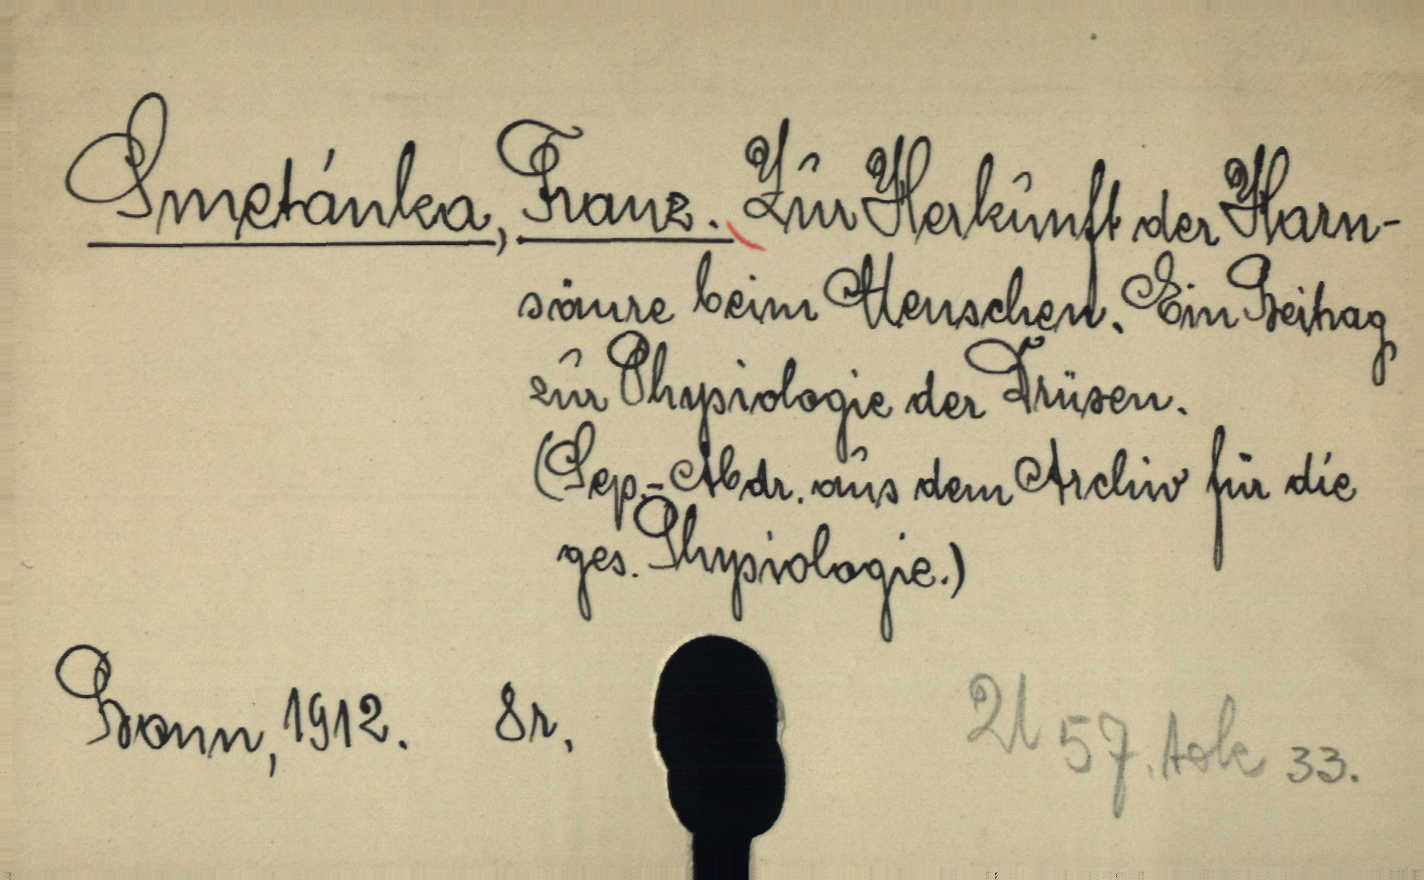 Smetánka, Franz. Zur Herkunft der Harn-
säure beim Menschen. Ein Beitrag
zur Physiologie der Drüsen.
(Sep.-Abdr. aus dem Archiv für die
ges. Physiologie.)
Bonn, 1912. 8r.
57. tok 33.